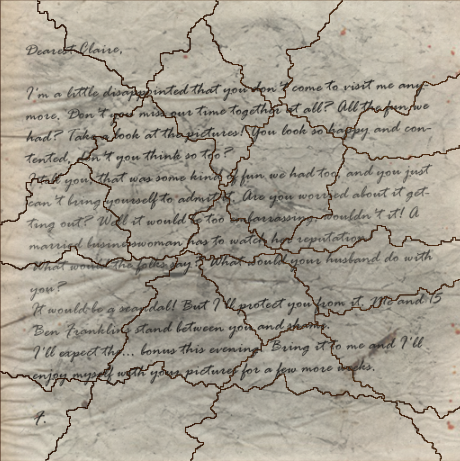 Dearest Claire,
I'm a little disappointed that you don't come to visit me any
more. Don't you miss our time together at all? All the fun we
had? Take a look at the pictures! You look so happy and con-
tented, don't you think so too?
I tell you, that was some kind of fun we had too, and you just
can't bring yourself to admit it. Are you worried about it get-
ting out? Well it would be too embarrassing, wouldn't it! A
married businesswoman has to watch her reputation.
What would the folks say? What would your husband do with
you?
It would be a scandal! But I'll protect you from it. Me and 15
Ben Franklins stand between you and shame.
I'll expect the... bonus this evening! Bring it to me and I'll
enjoy myself with your pictures for a few more weeks.